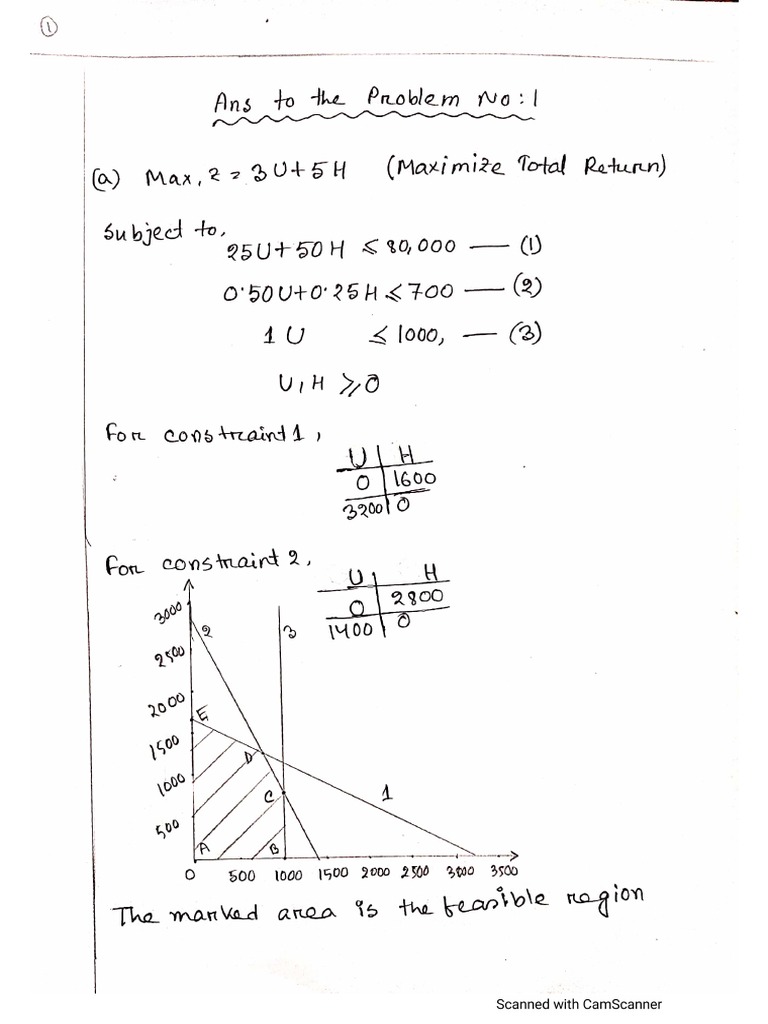 1
Ans to the Problem No: 1
(a) Max, Z = 3U+5H (Maximize Total Return)
Subject to,
25U+50H ≤ 80,000 — (1)
0.50U+0.25H ≤ 700 — (2)
1U ≤ 1000, — (3)
U, H ≥ 0
For constraint 1,
U H
0 1600
3200 0
For constraint 2,
U H
0 2800
1400 0
3000
2 3
2500
2000
E
1500
D
1000
C 1
500
A B
0 500 1000 1500 2000 2500 3000 3500
The marked area is the feasible region
Scanned with CamScanner